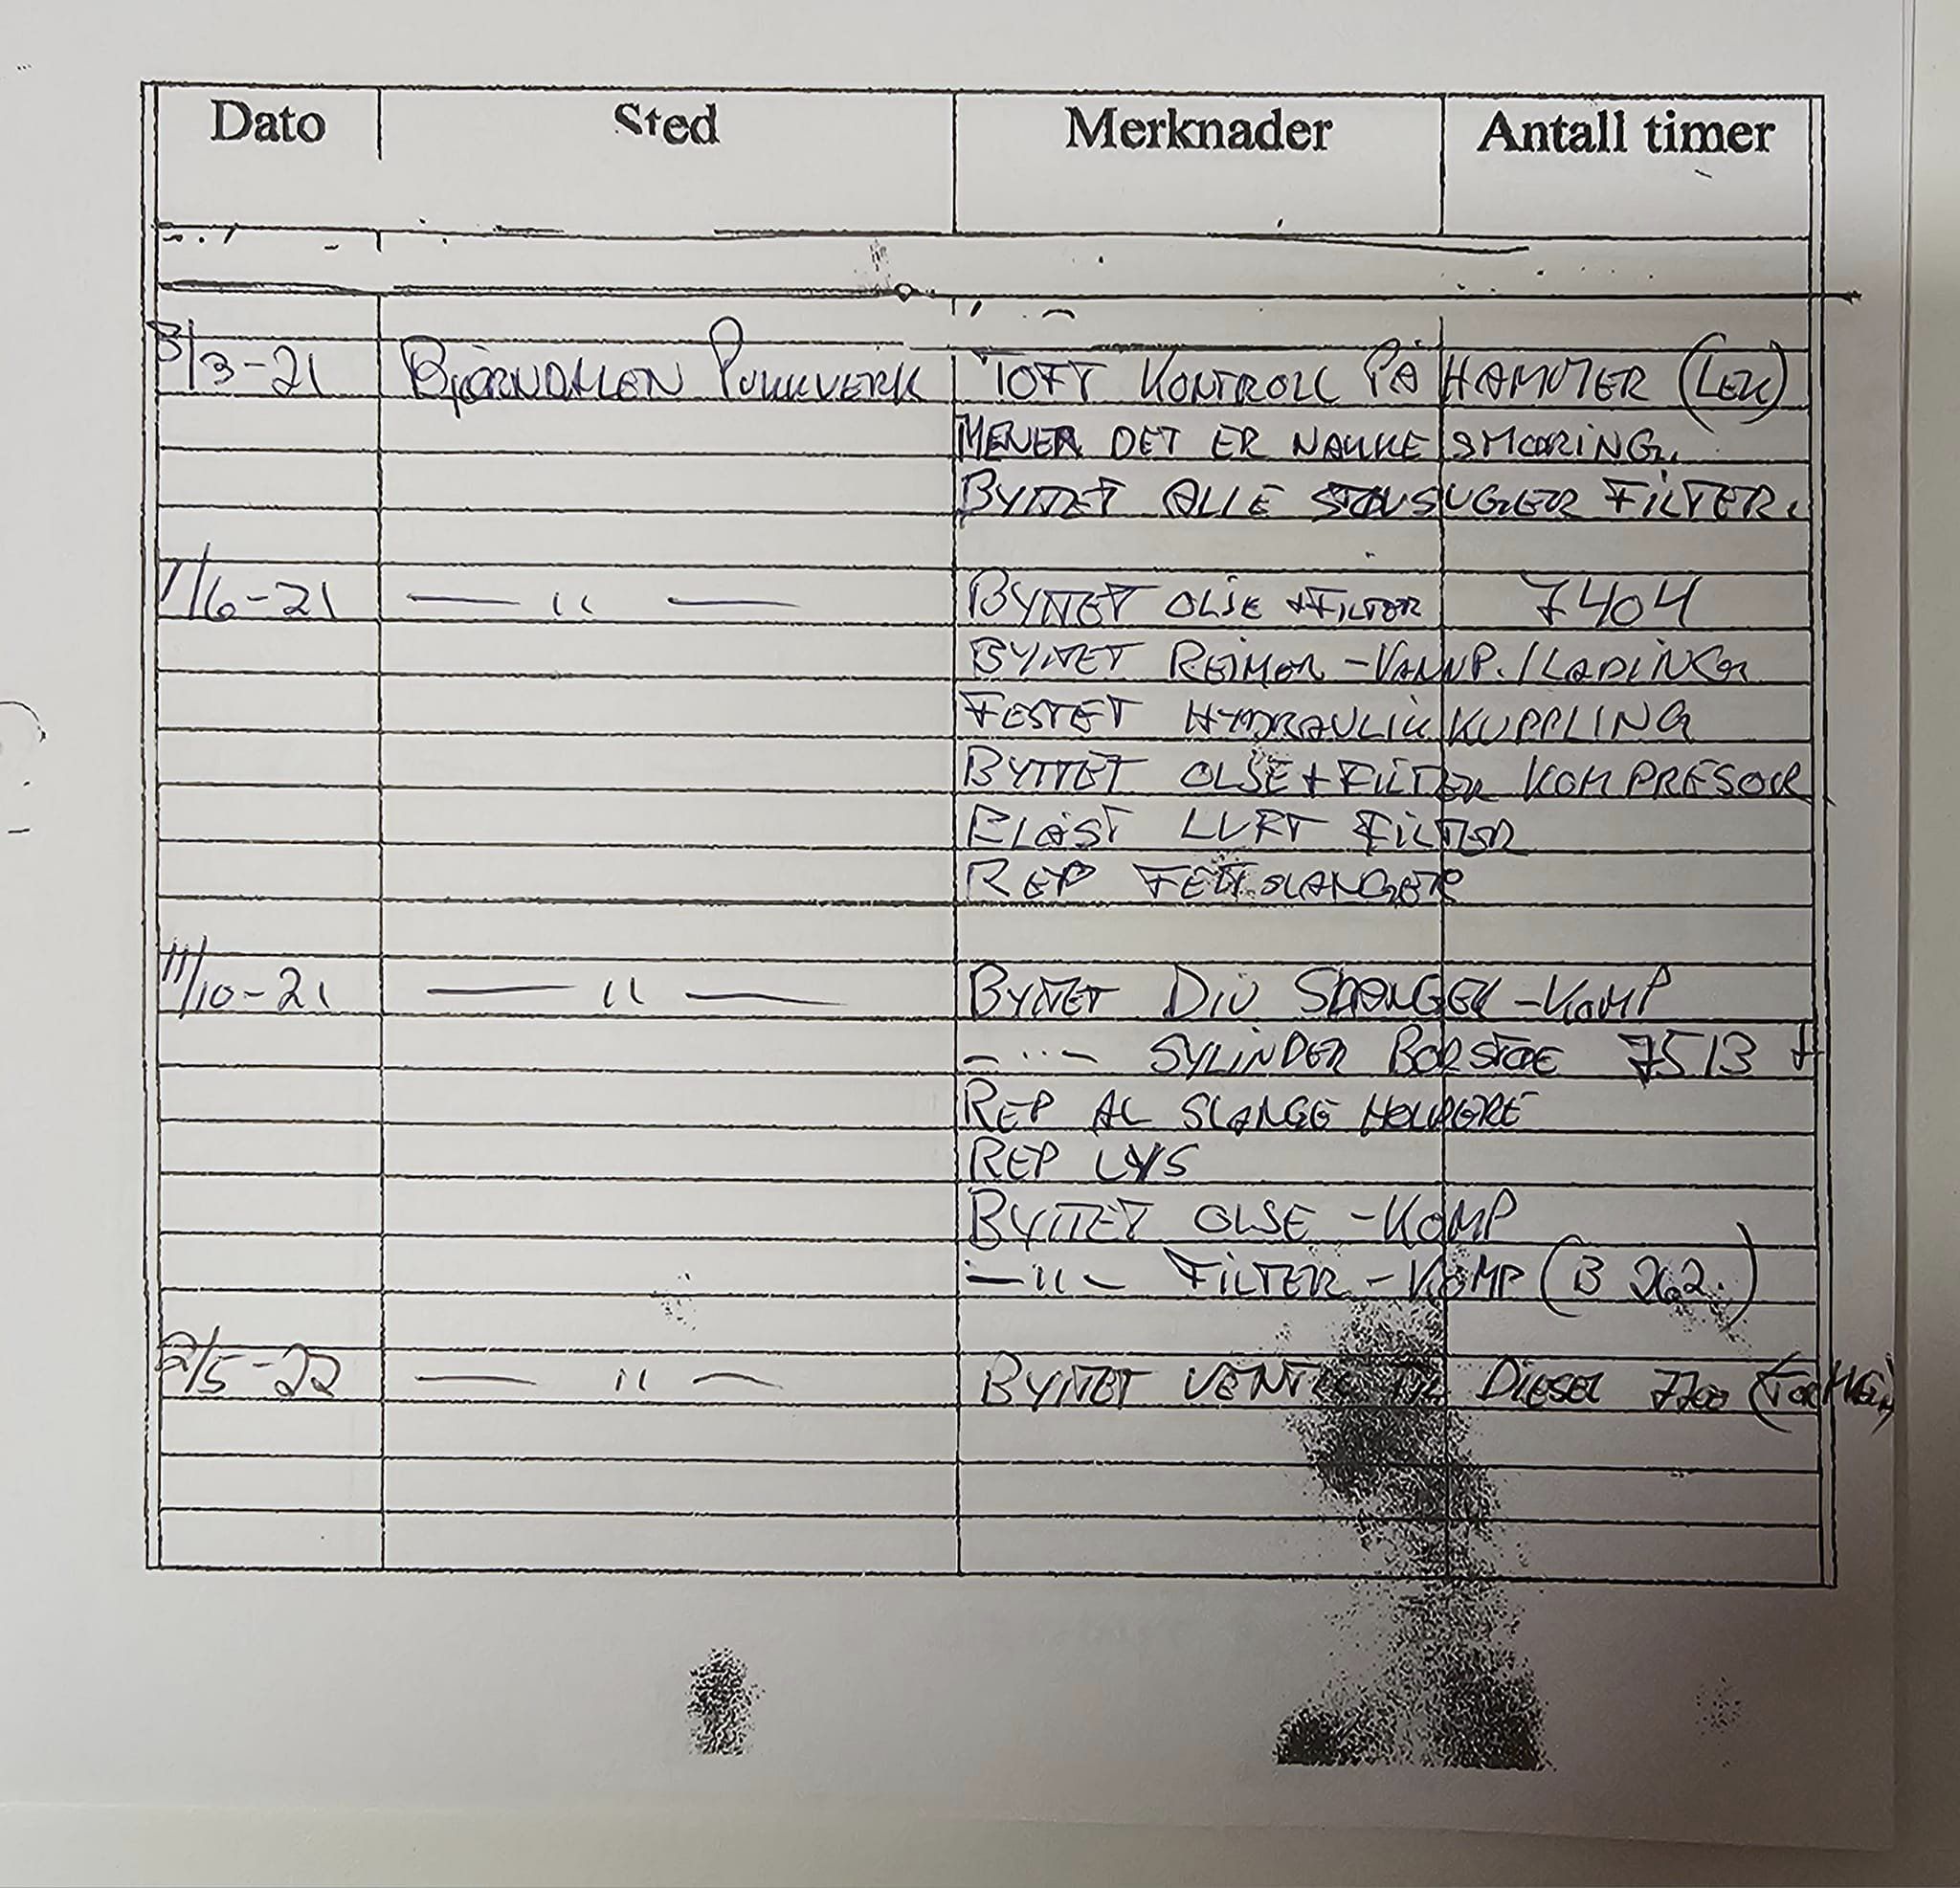 Dato Sted Merknader Antall timer
3/3-21 BJØRNDALEN PUKKVERK TOFT KONTROLL PÅ HAMMER (LEK)
MENER DET ER NAKKE SMØRING.
BYTTET ALLE STØVSUGER FILTER.
1/6-21 — " — BYTTET OLJE + FILTER 7404
BYTTET REIMER - VANNP. / LADING
FESTET HYDRAULIKKUPPLING
BYTTET OLJE + FILTER KOMPRESOR
BLÅST LUFT FILTER
REP FETTSLANGER
11/10-21 — " — BYTTET DIV SLANGER - KOMP
— " — SYLINDER BORSTØE 7513 t
REP AL SLANGE HOLDERE
REP LYS
BYTTET OLJE - KOMP
— " — FILTER - KOMP (B 262)
2/5-22 — " — BYTTET DIESEL 7700